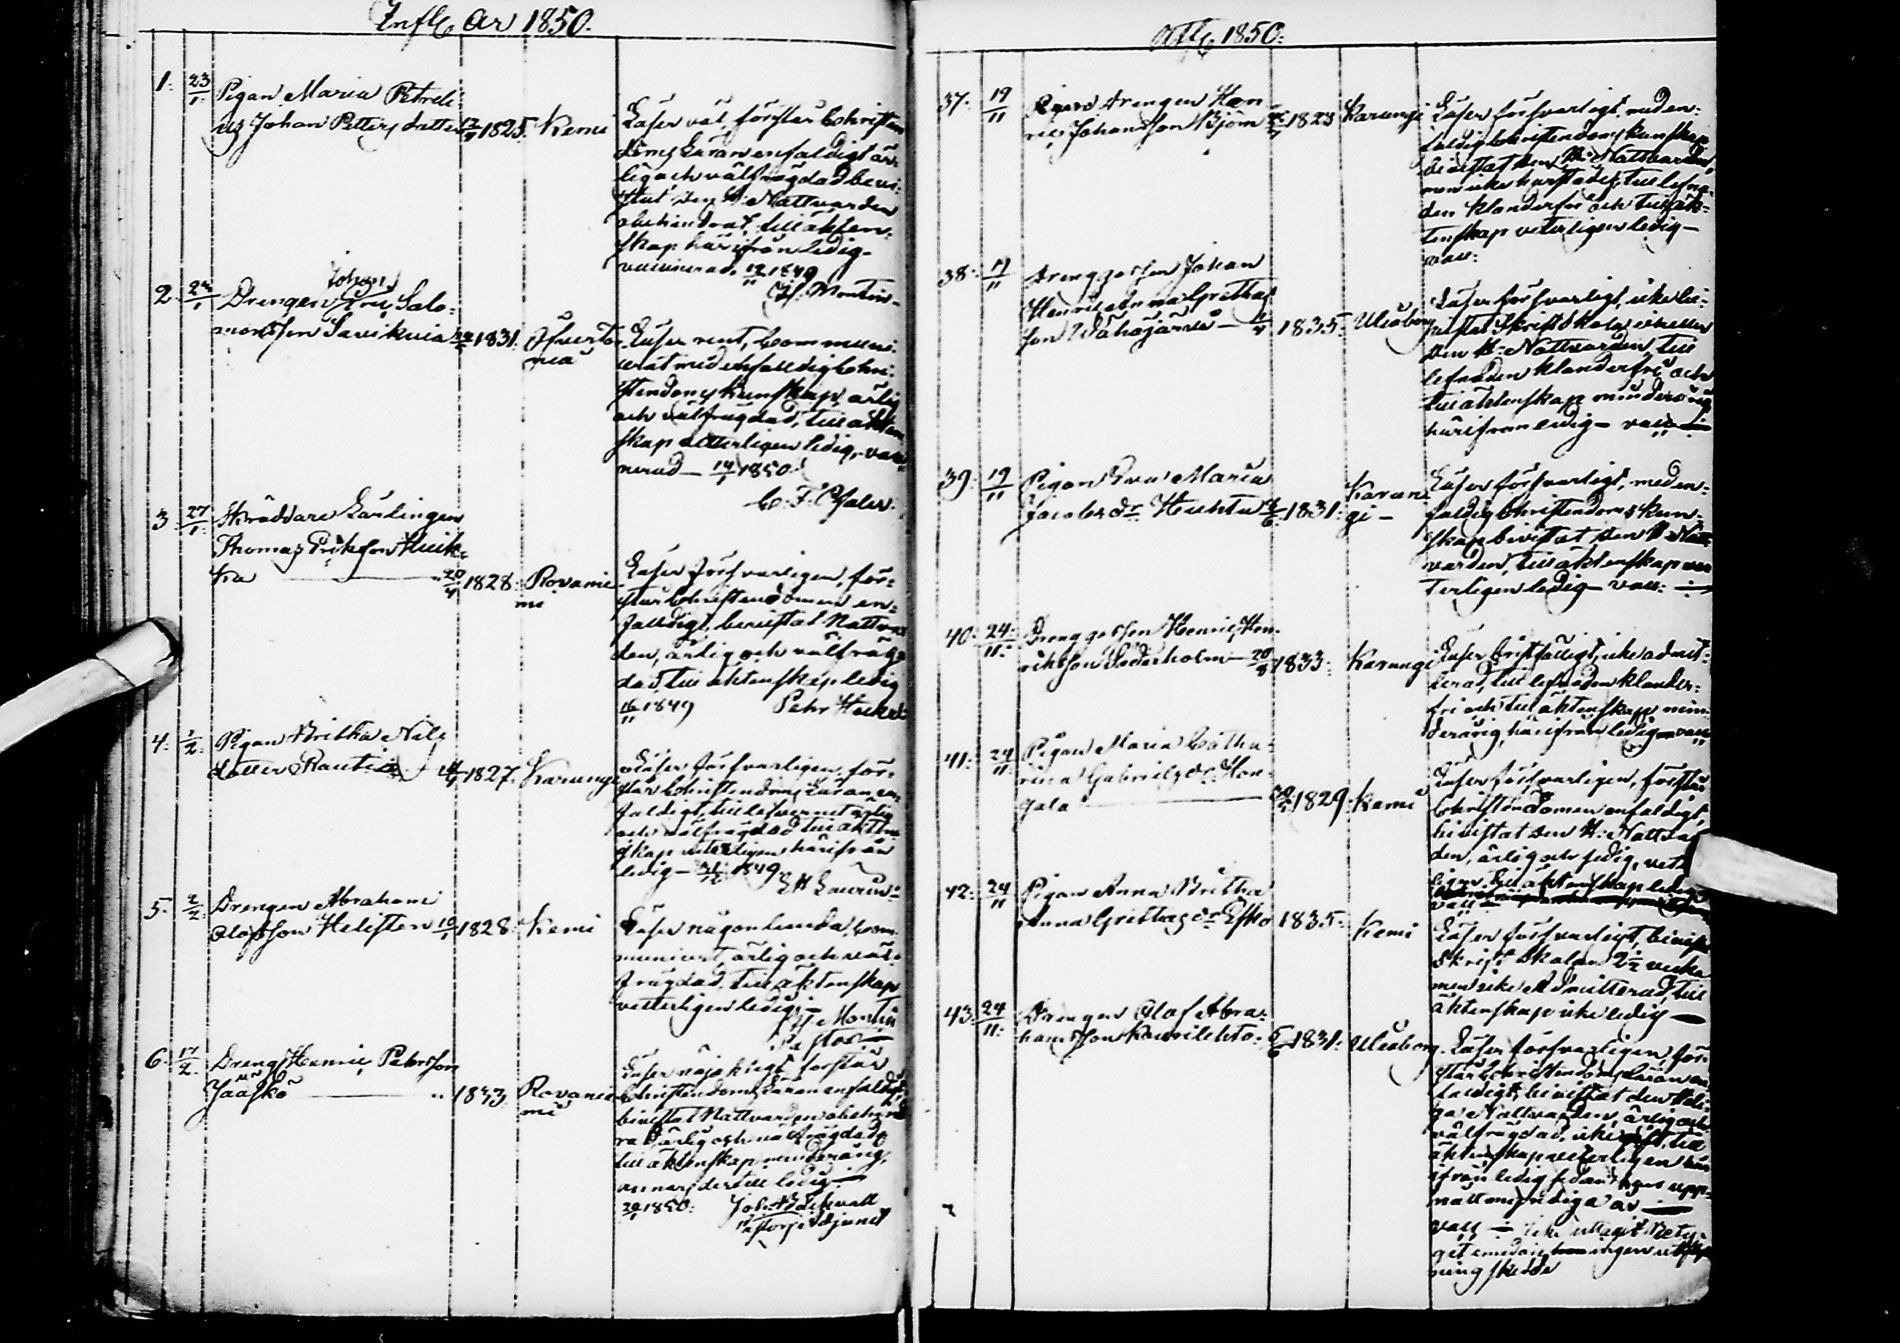 Inflg År 1850.
1. 23/1. Pigan Maria Petreli
Johan Petters dotter 1825. Kemi
Läser väl, förstår Christen
doms Läran enfaldigt är-
lig och välfrägdad bevi-
stat den H: Nattvarden
obehindrat till äkten-
skap härifrån ledig
vaccinerad. 12/11 1849
Montin
2. 24/1 Johan
Drengen Salo-
monsson Savikuia 1831. Öfverto
neå
Läser rent, Commun-
icerat med enfalldig Chri-
stendoms kunskap, ärlig
och välfrägdad, till äkten
skap vetterligen ledig, vacc
nerad — 14/1 1850.
C. F.
3 27/1. Skräddare Lärlingen
Thomas Eriksson Huik-
ka 20/4 1828. Rovanie
mi
Läser försvarligen, för-
står Christendomen en-
falldigt, bevistat Nattvar
den, ärlig och välfräg-
dad, till äktenskap ledig
16/11 1849 Pehr
4. 1/2. Pigan Britha Nils
dotter Rautio 1827. Karungi
Läser försvarligen, för-
står Christendoms Läran en-
faldigt, till lefvernet ärlig
och välfrägdad till äkten
skap veterligen härifrån
ledig — 31/12 1849
5. 2/2. Drengen Abraham
Olofsson Helisten 10/1 1828. Kemi
Läser någorlunda, com-
municert, ärlig och väl-
frägdad, till äktenskap
vetterligen ledig. —
Montin
Pastor —
6. 17/2. Dreng Henric Pehrsson
Jääskö 1833. Rovanie
mi
Läser nöjaktigt förstår
Christendoms Läran enfaldigt
bevistat Nattvarden obehind
rad ärlig och välfrägdad
till äktenskap minderårig,
annars dertill ledig —
1850. Joh.
Pastors Adjunct
Afflg 1850.
37. 19/11 Drengen Hen-
ric Johansson Björn 1823 Karungi
Läser försvarligt, med en-
faldig christendoms kunskap
bevistat den H: Nattvarden,
men icke härstädes, till lefna-
den klanderfri och till äk-
tenskap veterligen ledig —
vacc:
38. 19/11 Drenggossen Johan
Henric Anna Grethas
son Wähäjärvi — 1835. Uleåborg
Läser försvarligt, icke be-
vistat Skriftskola, icke eller
den H: Nattvarden, till
lefnaden klanderfri och
till äktenskap minderårig
härifrån ledig — vacc: —
39. 19/11 Pigan Eva Maria
Jacobs dr Huhta 1831. Karun
gi —
Läser försvarligt, med en-
faldig Christendoms kun-
skap bevistat den H: Natt-
varden, till äktenskap vet
terligen ledig — vacc: —
40. 24/11. Drenggossen Henric Hen-
riksson Söderholm — 20/9 1833. Karungi
Läser bristfälligt, icke admit-
terad, till lefnaden klander-
fri och till äktenskap min-
derårig, härifrån ledig — vacc
41. 24/11 Pigan Maria Catha-
rina Gabriels dr Hon-
gala 1829. Kemi
Läser försvarligen, förstår
Christendomen enfaldigt,
bevistat den H: Nattvar
den, ärlig och fredig, vet
ligen till äktenskap ledig
vacc —
42. 24/11 Pigan Anna Britha
Anna Grethas dr Esko 1835. Kemi
Läser försvarligt, bevist
Skriftskolan 2½ vecka
men icke Admitterad, till
äktenskap icke ledig —
43. 24/11. Drengen Olof Abra-
hamsson Kauvilehto. 6/6 1831. Uleåborg
Läser försvarligen för-
står Christendoms Läran en-
faldigt, bevistat den Heli-
ga Nattvarden, ärlig och
välfrägdad, icke gift, till
äktenskap vetterligen här
ifrån ledig sedan hans upp-
nått
vacc — icke uttagit Bety-
get emedan ingen utflytt-
ning skedde